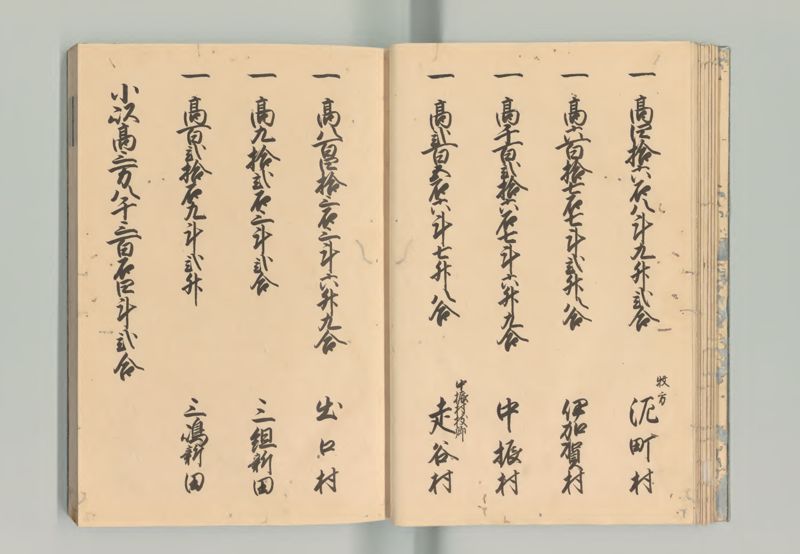 一 高四拾六石八斗九升弐合 牧方 泥町村
一 高六百拾七石七斗弐升八合 伊加賀村
一 高千百弐拾六石七斗六升九合 中振村
一 高弐百五石六斗七升八合 中振村枝郷 走谷村
一 高八百四拾三石三斗六升九合 出口村
一 高九拾弐石三斗弐合 三組新田
一 高百弐拾石九斗弐升 三嶋新田
小以高三万八千三百石四斗弐合